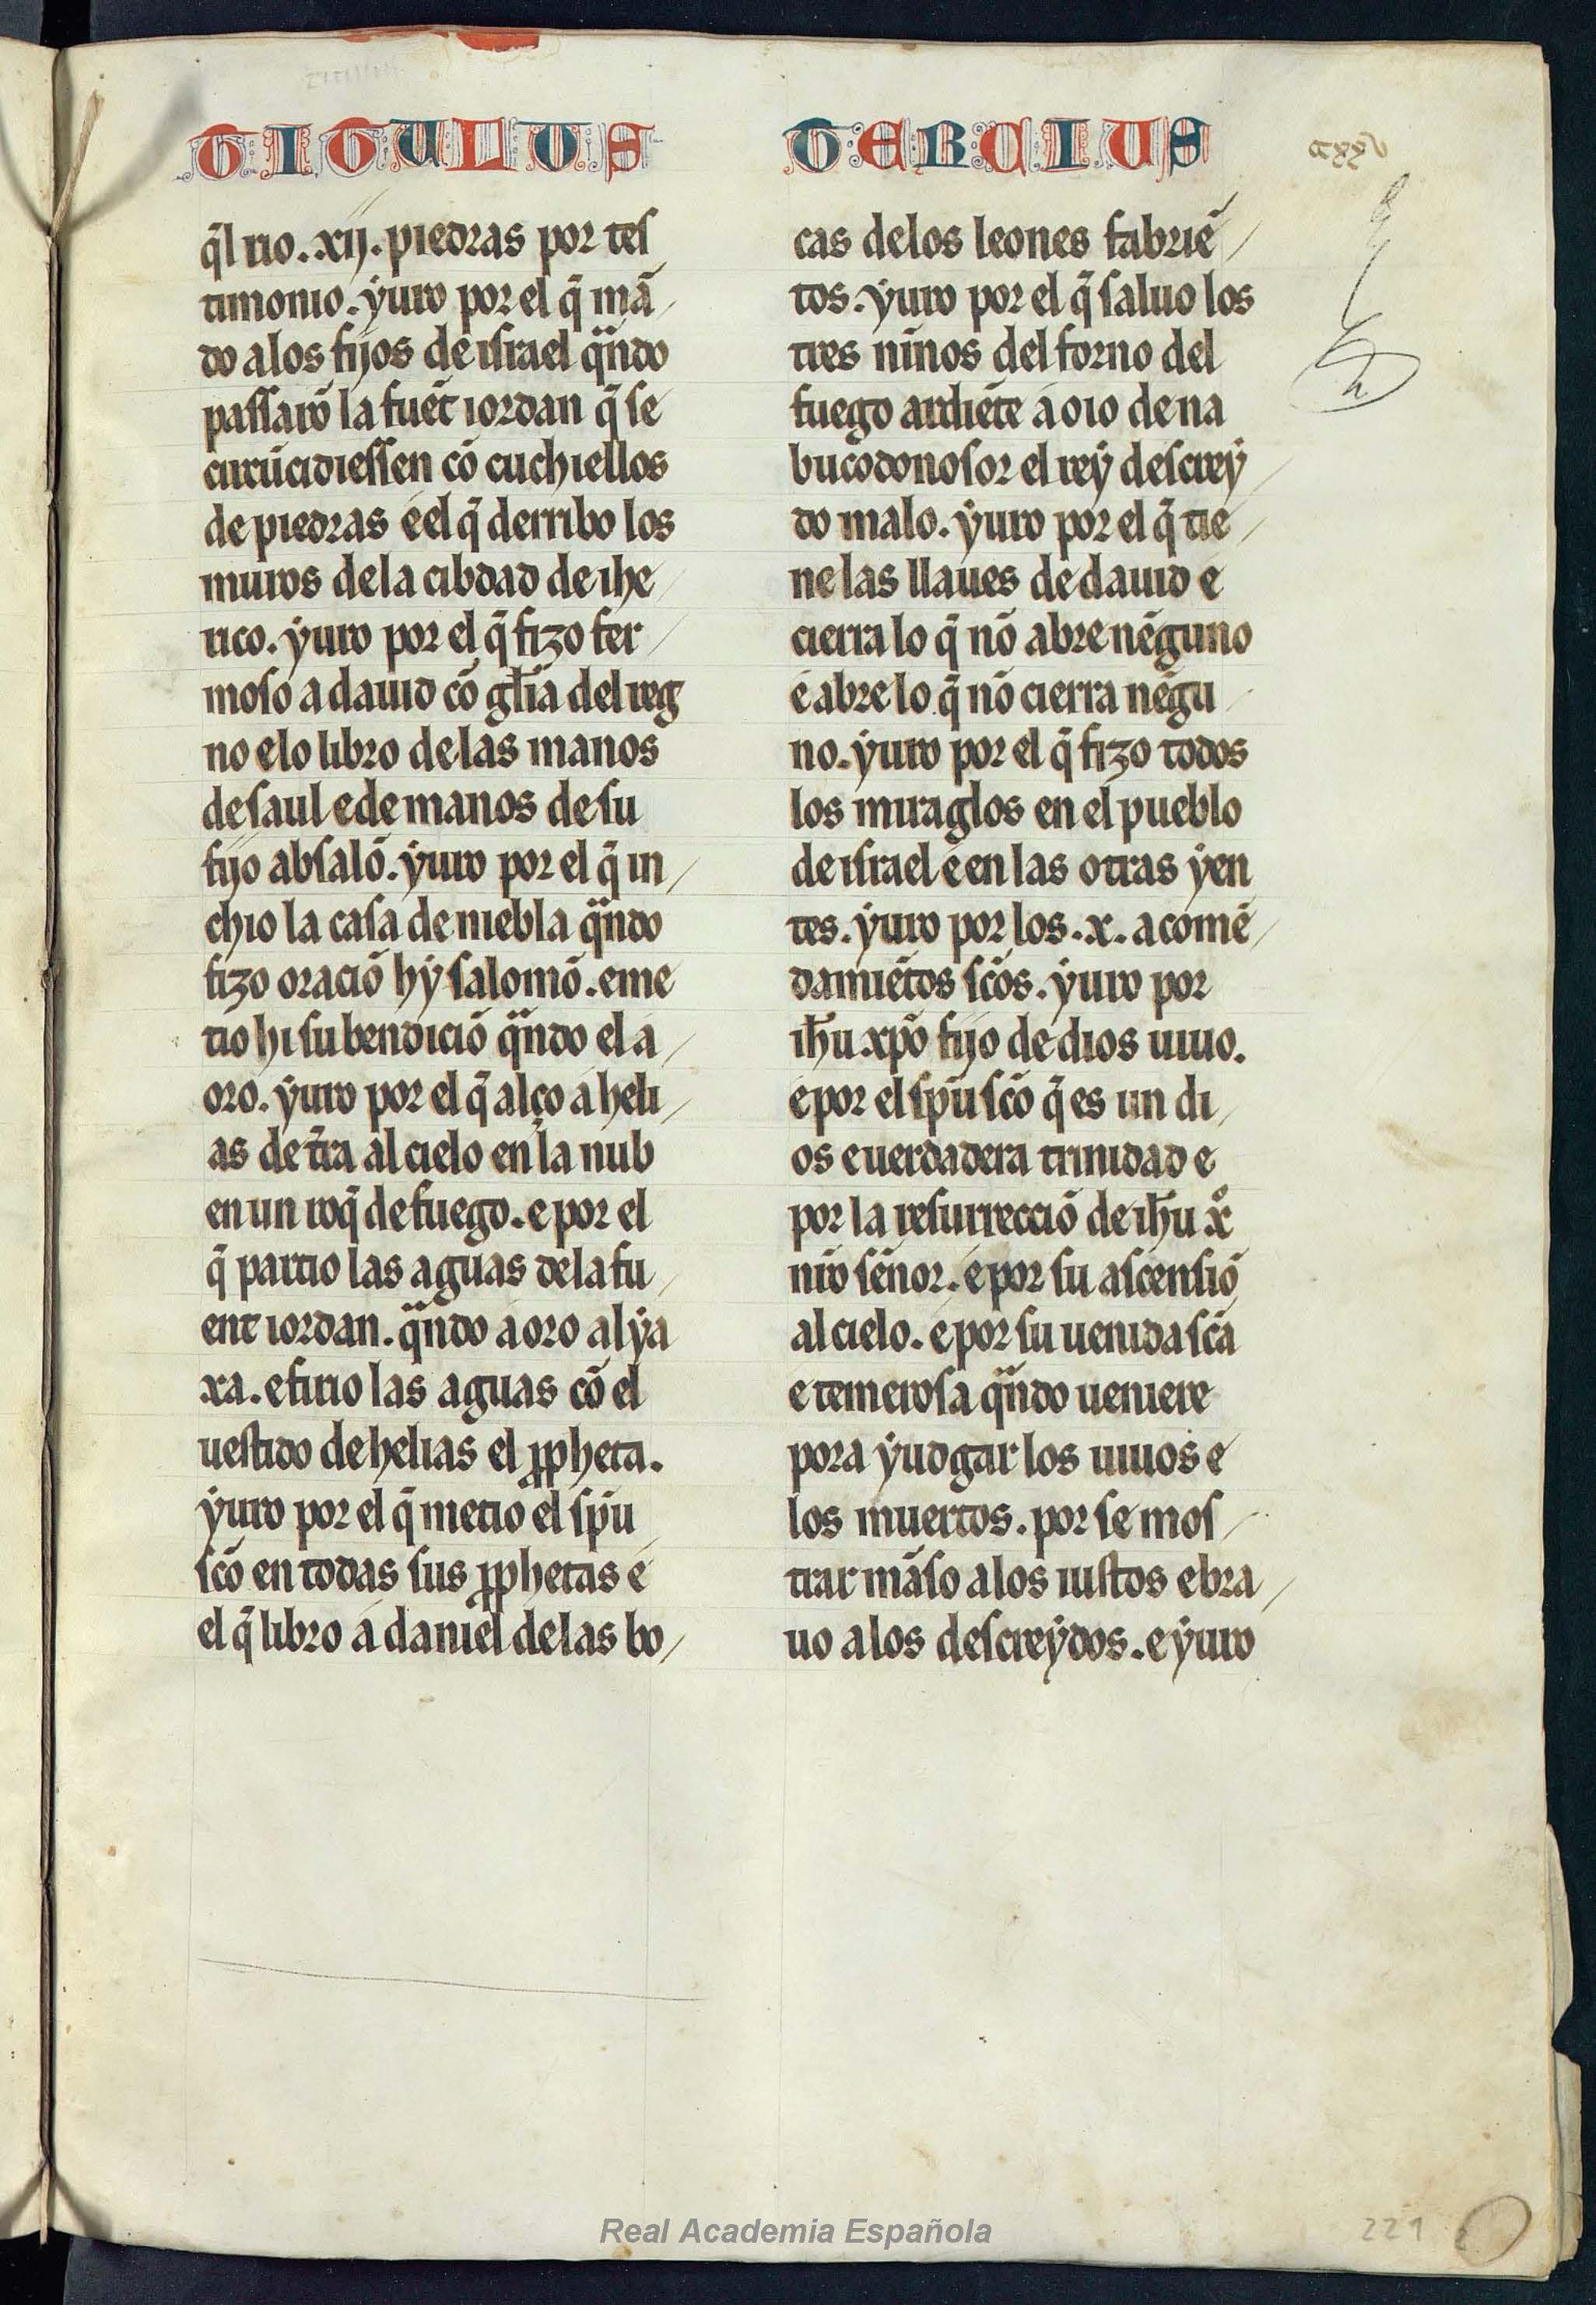 TITULUS TERCIUS
q̃l rio. xij. piedras por teſ
timonio. ẏuro por el q̃ mã
do alos fijos de iſrael qñdo
paſſarõ la fuẽt iordan q̃ ſe
circũcidieſſen cõ cuchiellos
de piedras e el q̃ derribo los
muros dela cibdad de ihe
rico. ẏuro por el q̃ fizo fer
moſo a dauid cõ gl̃ia del reg
no e lo libro de las manos
de ſaul e de manos de ſu
fijo abſalõ. ẏuro por el q̃ in
chio la caſa de niebla qñdo
fizo oraciõ hẏ ſalomõ. e me
tio hi ſu bendiciõ qñdo el a
oro. ẏuro por el q̃ alço a heli
as de tr̃a al cielo en la nub
en un roq̃ de fuego. e por el
q̃ partio las aguas dela fu
ent iordan. qñdo aoro al ẏa
xa. e firio las aguas cõ el
ueſtido de helias el ꝓpheta.
ẏuro por el q̃ metio el ſpũ
ſcõ en todas ſus ꝓphetas e
el q̃ libro a daniel delas bo
cas delos leones fabriẽ
tos. ẏuro por el q̃ ſaluo los
tres ninos del forno del
fuego ardiẽte a oio de na
bucodonoſor el reẏ deſcreẏ
do malo. ẏuro por el q̃ tie
ne las llaues de dauid e
cierra lo q̃ nõ abre nẽguno
e abre lo q̃ nõ cierra nẽgu
no. ẏuro por el q̃ fizo todos
los miraglos en el pueblo
de iſrael e en las otras ẏen
tes. ẏuro por los .x. acomẽ
damiẽtos ſcõs. ẏuro por
ih̃u xpõ fijo de dios uiuo.
e por el ſpũ ſcõ q̃ es un di
os e uerdadera trinidad e
por la reſurrecciõ de ih̃u xº
nr̃o ſẽnor. e por ſu aſcenſiõ
al cielo. e por ſu uenida ſcã
e temeroſa qñdo ueniere
pora ẏudgar los uiuos e
los muertos. por ſe moſ
trar mãſo alos iuſtos e bra
uo alos deſcreẏdos. e ẏuro
Real Academia Española
221